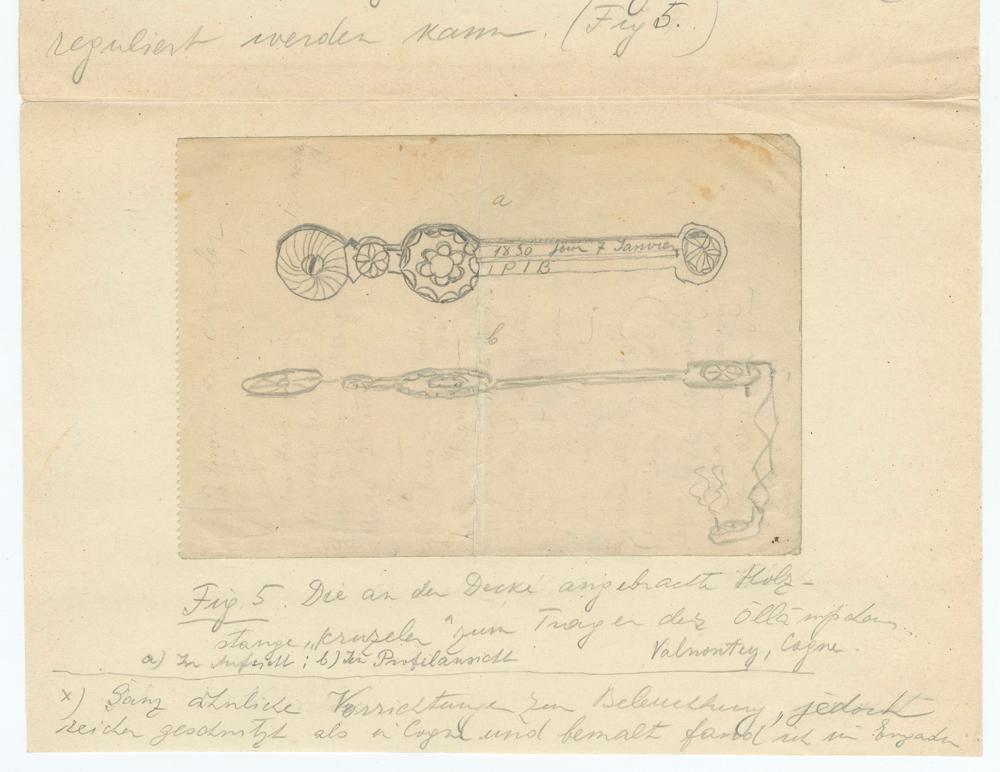 reguliert werden kann. (Fig 5.)
a
1830 Jour 7 Janvier
I P I B
b
Fig 5. Die an der Decke angebrachte Holz-
stange „kruzeler" zum Tragen des Öllämpchens
a) In Aufsicht; b) In Profilansicht Valnontey, Cogne.
x) Ganz ähnliche Vorrichtungen zur Beleuchtung, jedoch
reicher geschnitzt als in Cogne und bemalt fand ich im Engadin